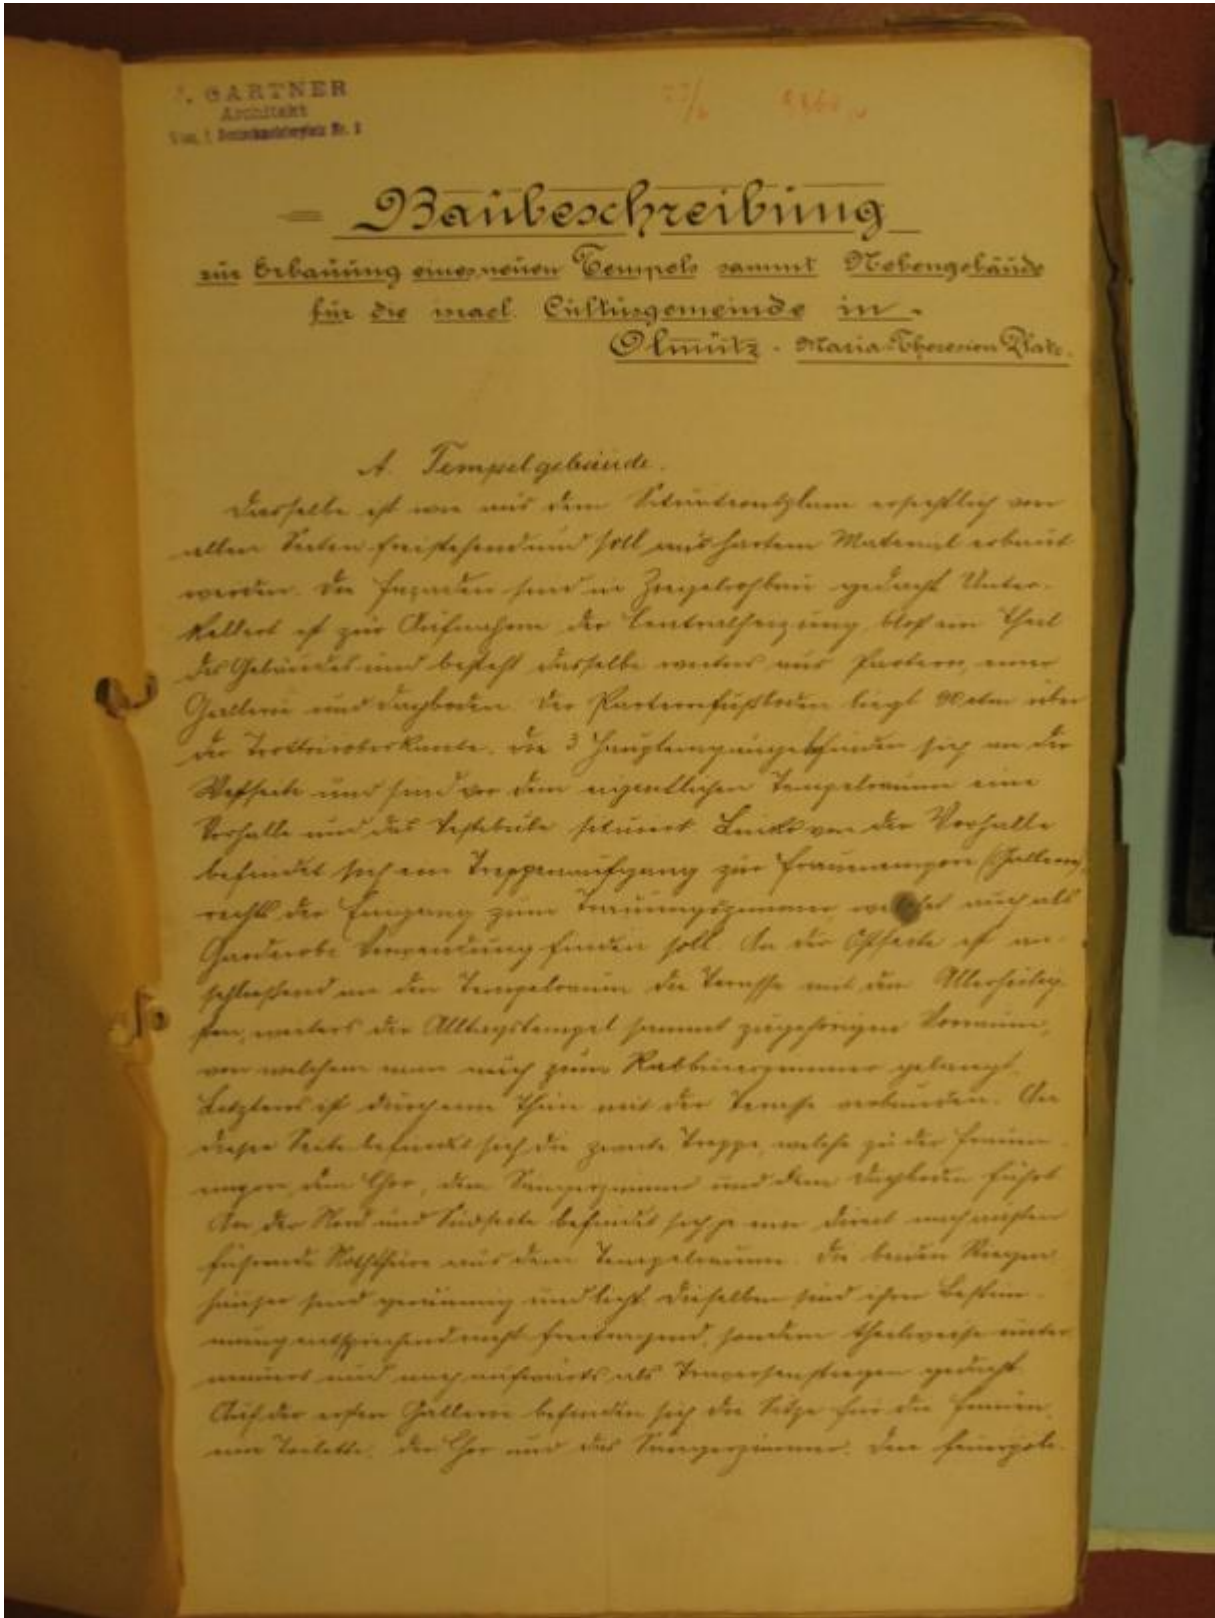 GARTNER
Architekt
Wien, I. Deutschmeisterplatz Nr. 2
Baubeschreibung
zur Erbauung eines neuen Tempels sammt Nebengebäude
für die israel. Cultusgemeinde in
Olmütz - Maria-Theresien Platz.
A. Tempelgebäude.
Dasselbe ist wie aus dem Situationsplane ersichtlich von
allen Seiten freistehend und soll aus hartem Material erbaut
werden. Die Façaden sind in Ziegelrohbau gedacht. Unter-
kellert ist zur Aufnahme der Centralheizung blos ein Theil
des Gebäudes und besteht dasselbe weiters aus Parterre, einer
Gallerie und Dachboden. Der Parterrefußboden liegt 90 ctm über
der Trottoiroberkante. Die 3 Haupteingänge befinden sich an der
Westseite und sind vor dem eigentlichen Tempelraum eine
Vorhalle und das Vestibule situiert. Links von der Vorhalle
befindet sich ein Treppenaufgang zur Frauenempore (Gallerie),
rechts der Eingang zum Trauungszimmer, welches auch als
Garderobe Verwendung finden soll. An der Ostseite ist an-
schließend an den Tempelraum die Terasse mit dem Allerheilig-
sten, weiters der Alltagstempel sammt zugehörigem Vorraum,
von welchem man auch zum Rabbinerzimmer gelangt.
Letzteres ist durch eine Thüre mit der Terasse verbunden. An
dieser Seite befindet sich die zweite Treppe, welche zu der Frauen-
empore, dem Chor, dem Sängerzimmer und dem Dachboden führt.
An der Nord und Südseite befindet sich je eine direct nach außen
führende Noththüre aus dem Tempelraume. Die beiden Stiegen-
häuser sind geräumig und licht. Dieselben sind ihrer Bestim-
mung entsprechend nicht freitragend, sondern theilweise unter-
mauert und nach aufwärts als Traversenstiegen gedacht.
Auf der ersten Gallerie befinden sich die Sitze für die Frauen,
eine Toilette, der Chor und das Sängerzimmer. Den